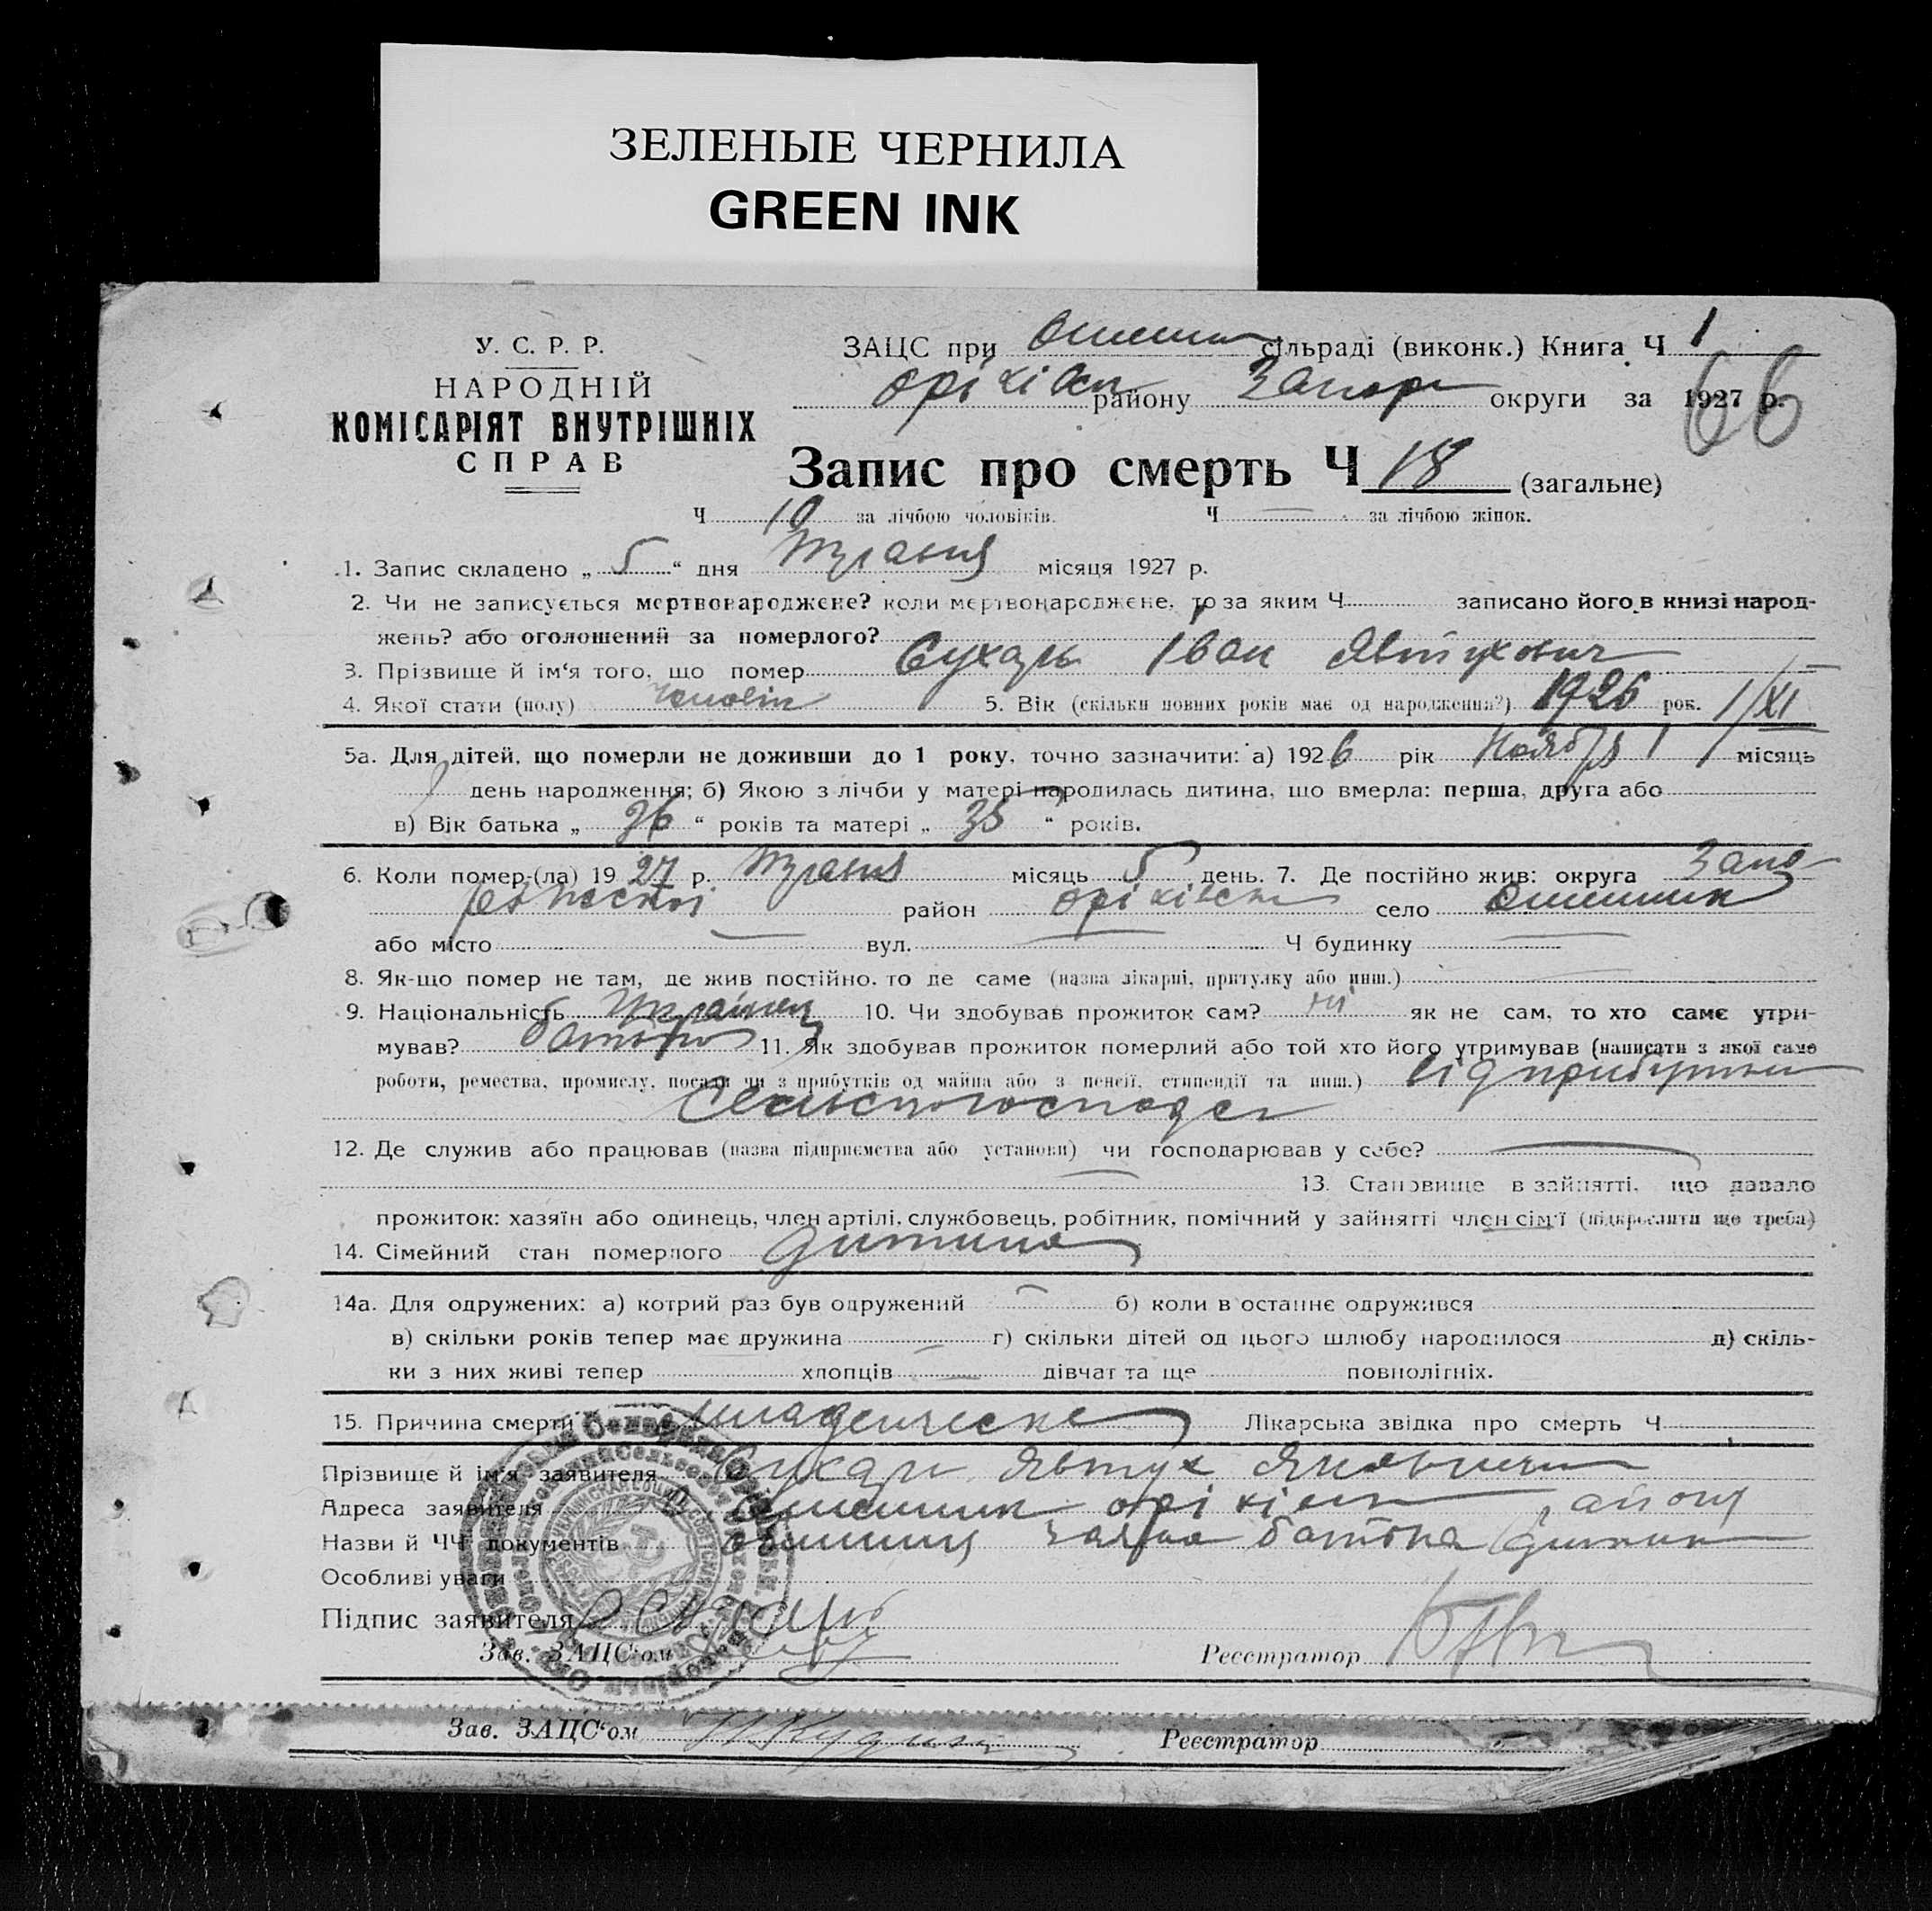 ЗЕЛЕНЫЕ ЧЕРНИЛА
GREEN INK
У. С. Р. Р.
НАРОДНІЙ
КОМІСАРІЯТ ВНУТРІШНІХ
СПРАВ
ЗАЦС при сільраді (виконк.) Книга Ч 1
Оріхівськ району Запор округи за 1927 р.
66
Запис про смерть Ч 18 (загальне)
Ч 10 за лічбою чоловіків. Ч — за лічбою жінок.
1. Запис складено „ 5 “ дня Травня місяця 1927 р.
2. Чи не записується мертвонароджене? коли мертвонароджене, то за яким Ч записано його в книзі народ-
жень? або оголошений за померлого?
3. Прізвище й ім‘я того, що помер Сухарь Іван Явтухович
4. Якої стати (полу) чоловік 5. Вік (скільки повних років має од народження?) 1926 рок. 1/XI
5а. Для дітей, що померли не доживши до 1 року, точно зазначити: а) 1926 рік Ноября 1 місяць
день народження; б) Якою з лічби у матері народилась дитина, що вмерла: перша, друга або
в) Вік батька „ 36 “ років та матері „ 35 “ років.
6. Коли помер-(ла) 1927 р. Травня місяць 5 день. 7. Де постійно жив: округа Запо
різській район Оріхівськ село
або місто — вул. — Ч будинку —
8. Як-що помер не там, де жив постійно, то де саме (назва лікарні, притулку або инш.)
9. Національність Українец 10. Чи здобував прожиток сам? ні як не сам, то хто саме утри-
мував? батько 11. Як здобував прожиток померлий або той хто його утримував (написати з якої саме
роботи, ремества, промислу, посади чи з прибутків од майна або з пенсії, стипендії та инш.) від прибутки
12. Де служив або працював (назва підприємства або установи) чи господарював у себе? —
— 13. Становище в зайнятті, що давало
прожиток: хазяїн або одинець, член артілі, службовець, робітник, помічний у зайнятті член сім‘ї (підкреслити що треба)
14. Сімейний стан померлого дитина
14а. Для одружених: а) котрий раз був одружений — б) коли в останнє одружився
в) скільки років тепер має дружина — г) скільки дітей од цього шлюбу народилося д) скіль-
ки з них живі тепер хлопців — дівчат та ще повнолітніх.
15. Причина смерти младенческе Лікарська звідка про смерть Ч
Прізвище й ім‘я заявителя Сухарь Явтух Якович
Адреса заявителя Оріхівськ району
Назви й ЧЧ документів заява батька
Особливі уваги
Підпис заявителя
Зав. ЗАЦС‘ом Реєстратор
Зав. ЗАЦС‘ом Реєстратор